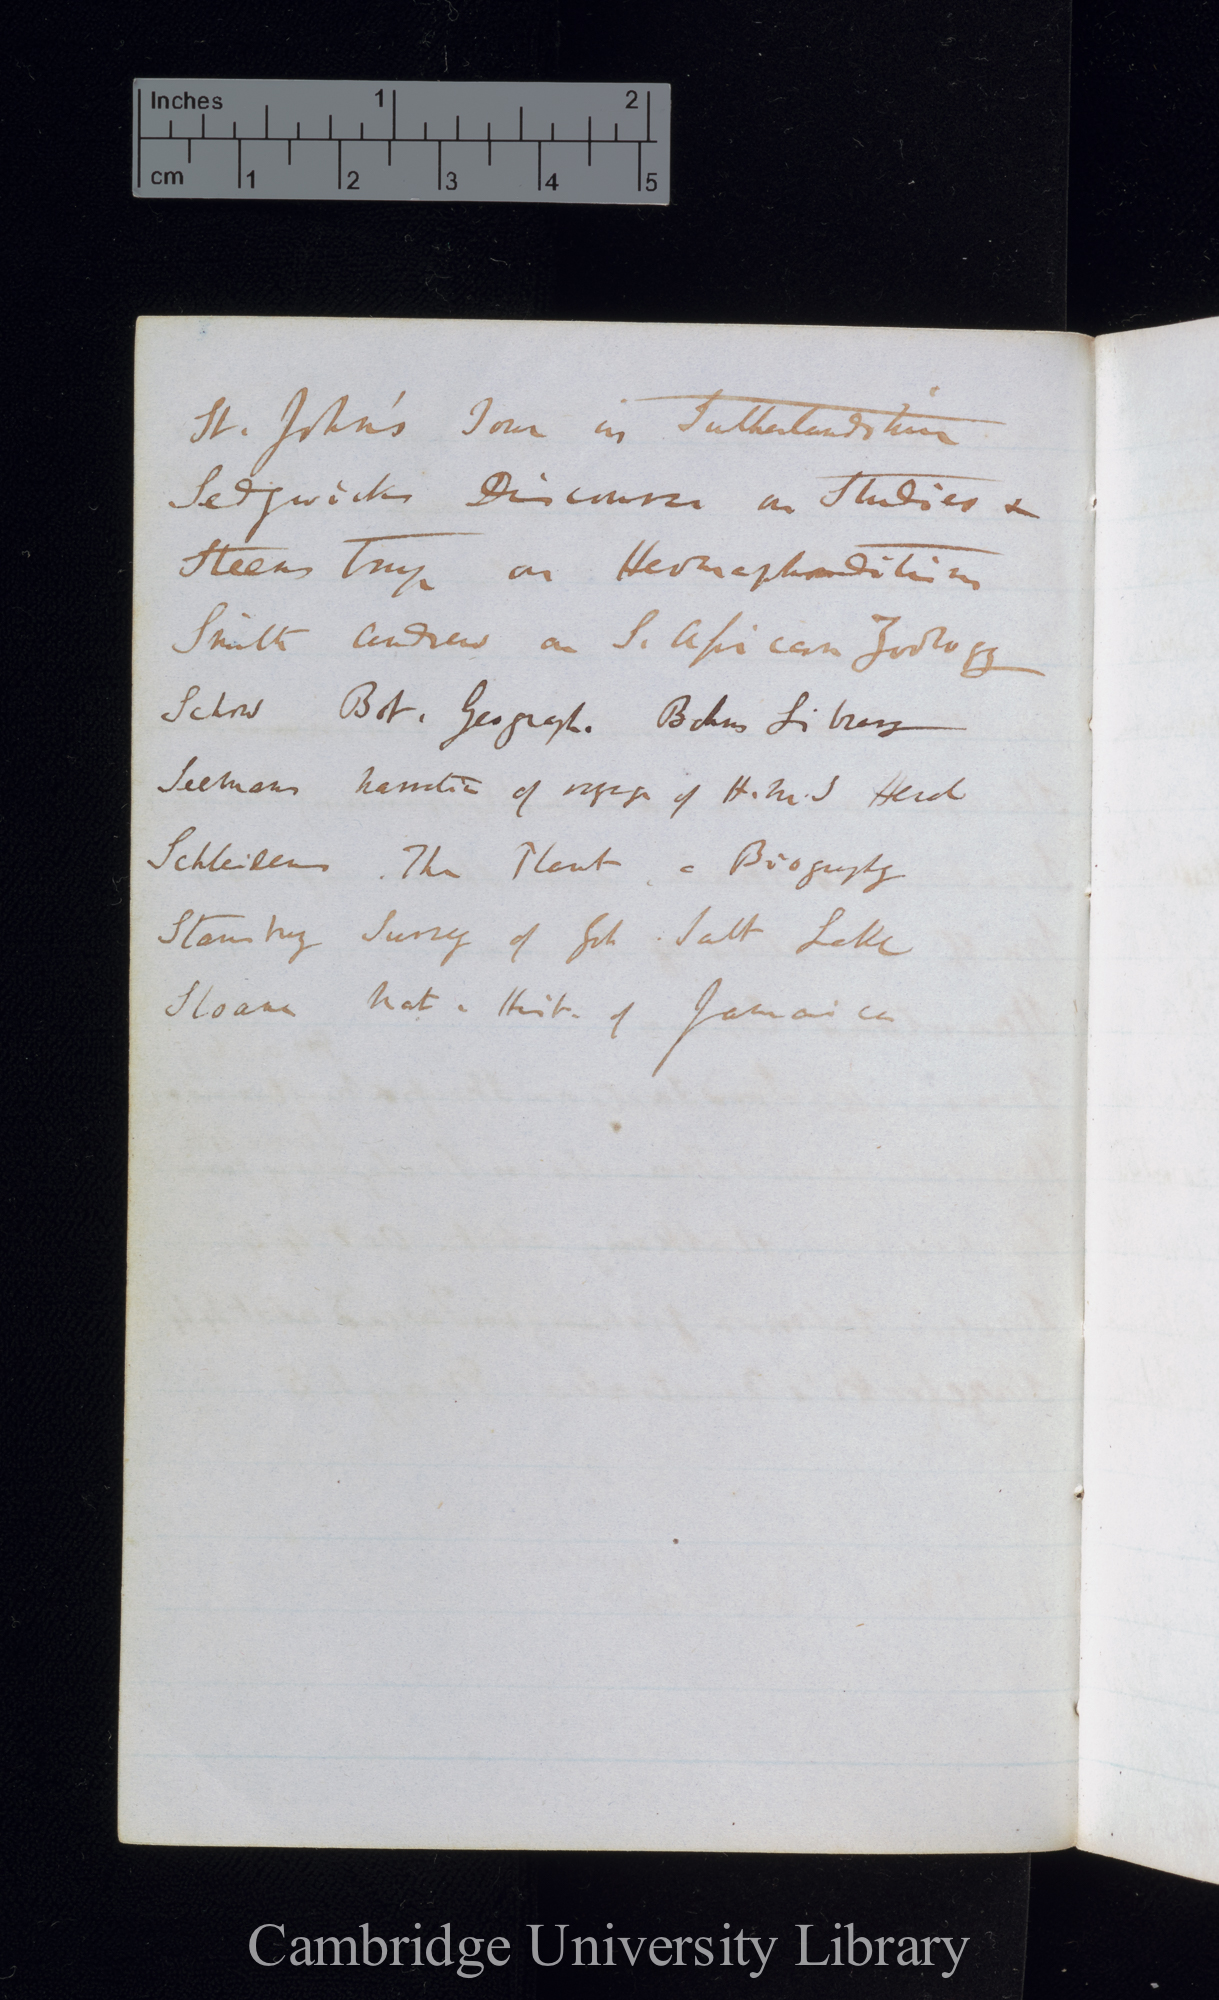 Inches 1 2
cm 1 2 3 4 5
St. John's Tour in Sutherlandshire
Sedgwicks Discourse on Studies &
Steenstrup on Hermaphroditism
Smith Andrew on S. African Zoology
Schow Bot. Geograph. Bohns Library
Seemans narrative of voyage of H.M.S Herald
Schleidens The Plant a Biography
Stansbury Survey of Grt Salt Lake
Sloane Nat. Hist. of Jamaica
Cambridge University Library